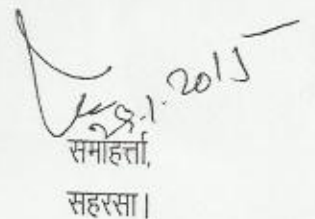 .1.2015
समाहर्त्ता,
सहरसा।